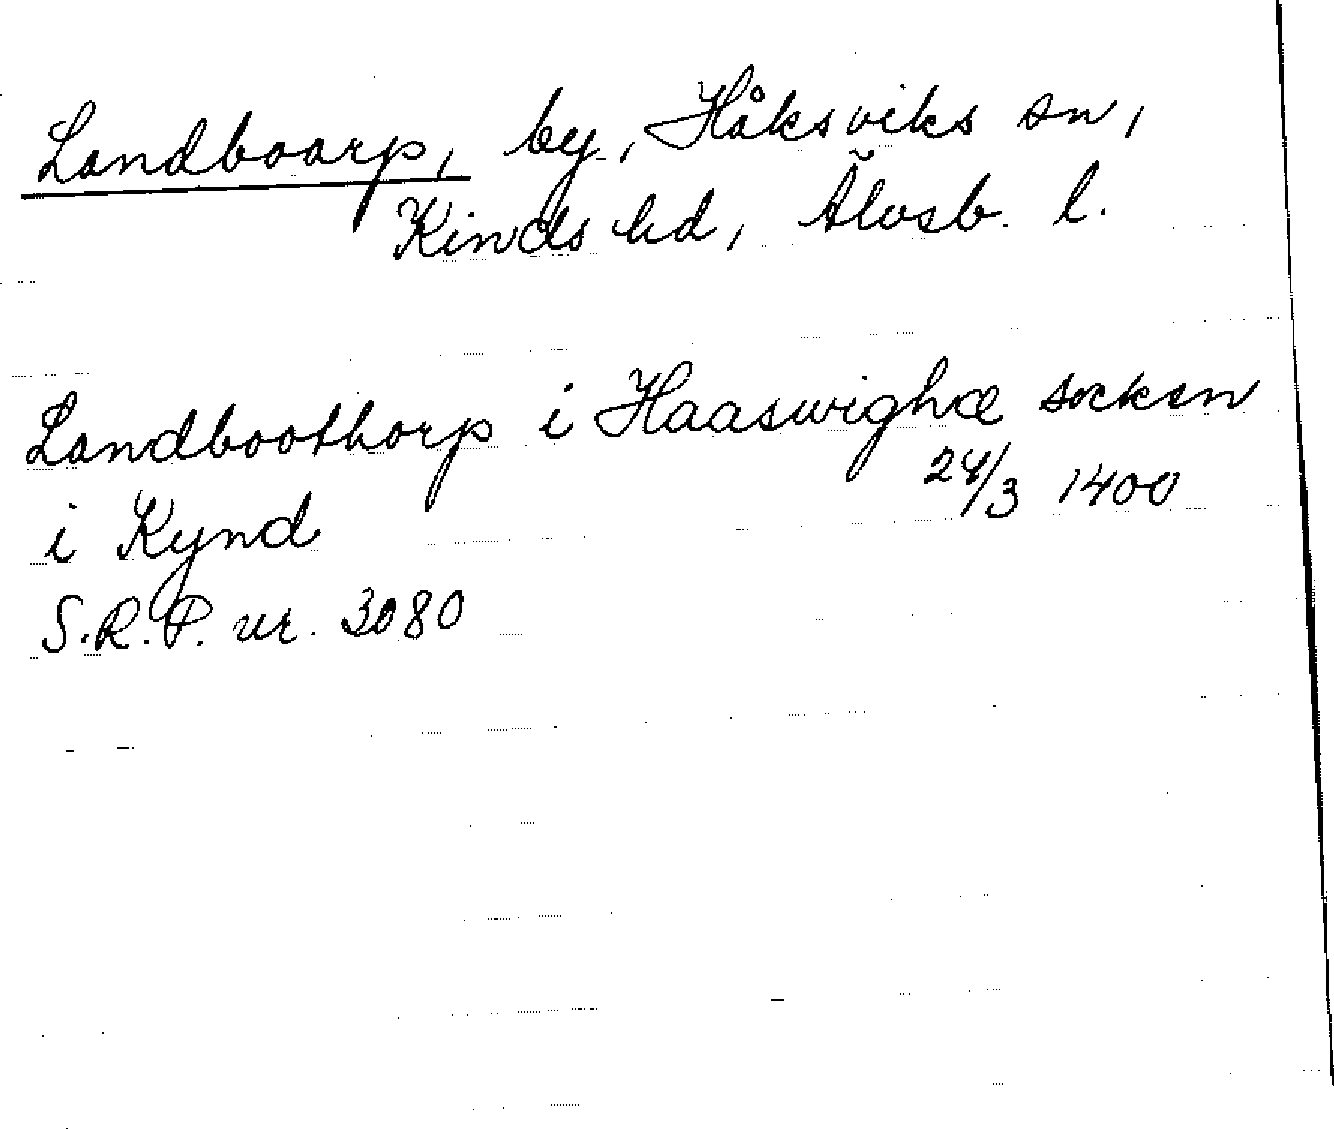 Landboarp, by, Håksviks sn,
Kinds hd, Älvsb. l.
Landboothorp i Haaswighæ socken
24/3 1400
i Kynd
S.R.P. nr. 3080